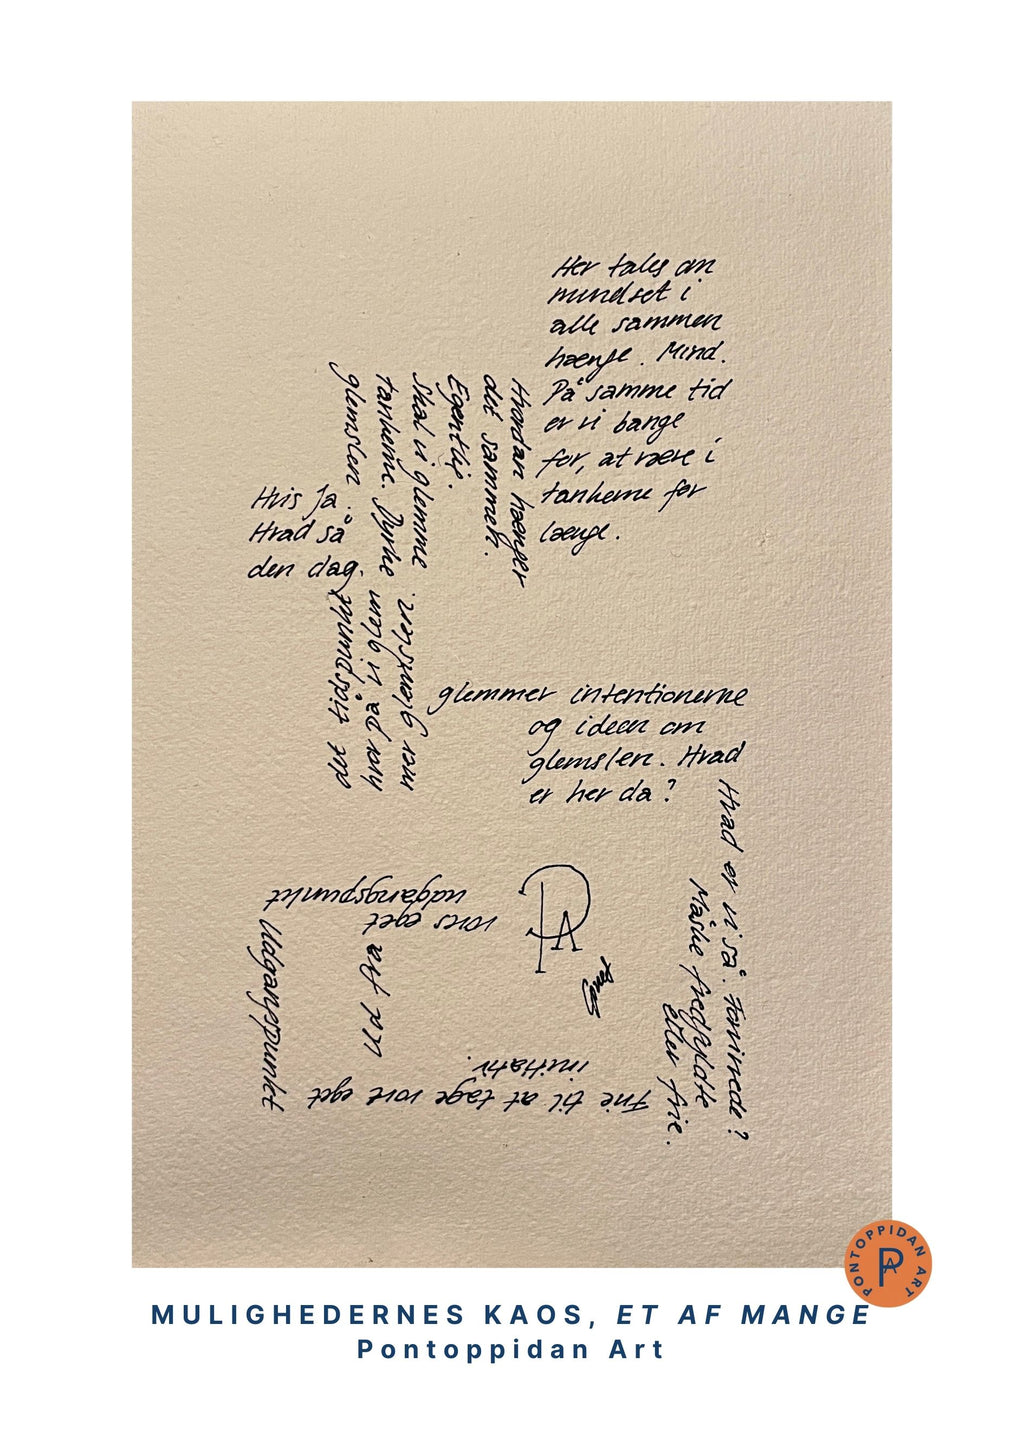 Her tales om
mindset i
alle sammen
hænge. Mind.
På samme tid
er vi bange
for, at være i
tankerne for
længe.
Hvordan hænger
det sammen.
Egentlig.
Skal vi glemme
tankerne. Dyrke
glemslen.
Hvis Ja.
Hvad så
den dag,
det tidspunkt
hvor på vi glem
mer glemslen.
glemmer intentionerne
og ideen om
glemslen. Hvad
er her da?
Hvad er vi så. Forvirrede?
Måske fredfyldte
eller frie.
Frie til at tage vore eget
initiativ.
ud fra
vores eget
udgangspunkt
Udgangspunktet
PA
MULIGHEDERNES KAOS, ET AF MANGE
Pontoppidan Art
PONTOPPIDAN ART
PA